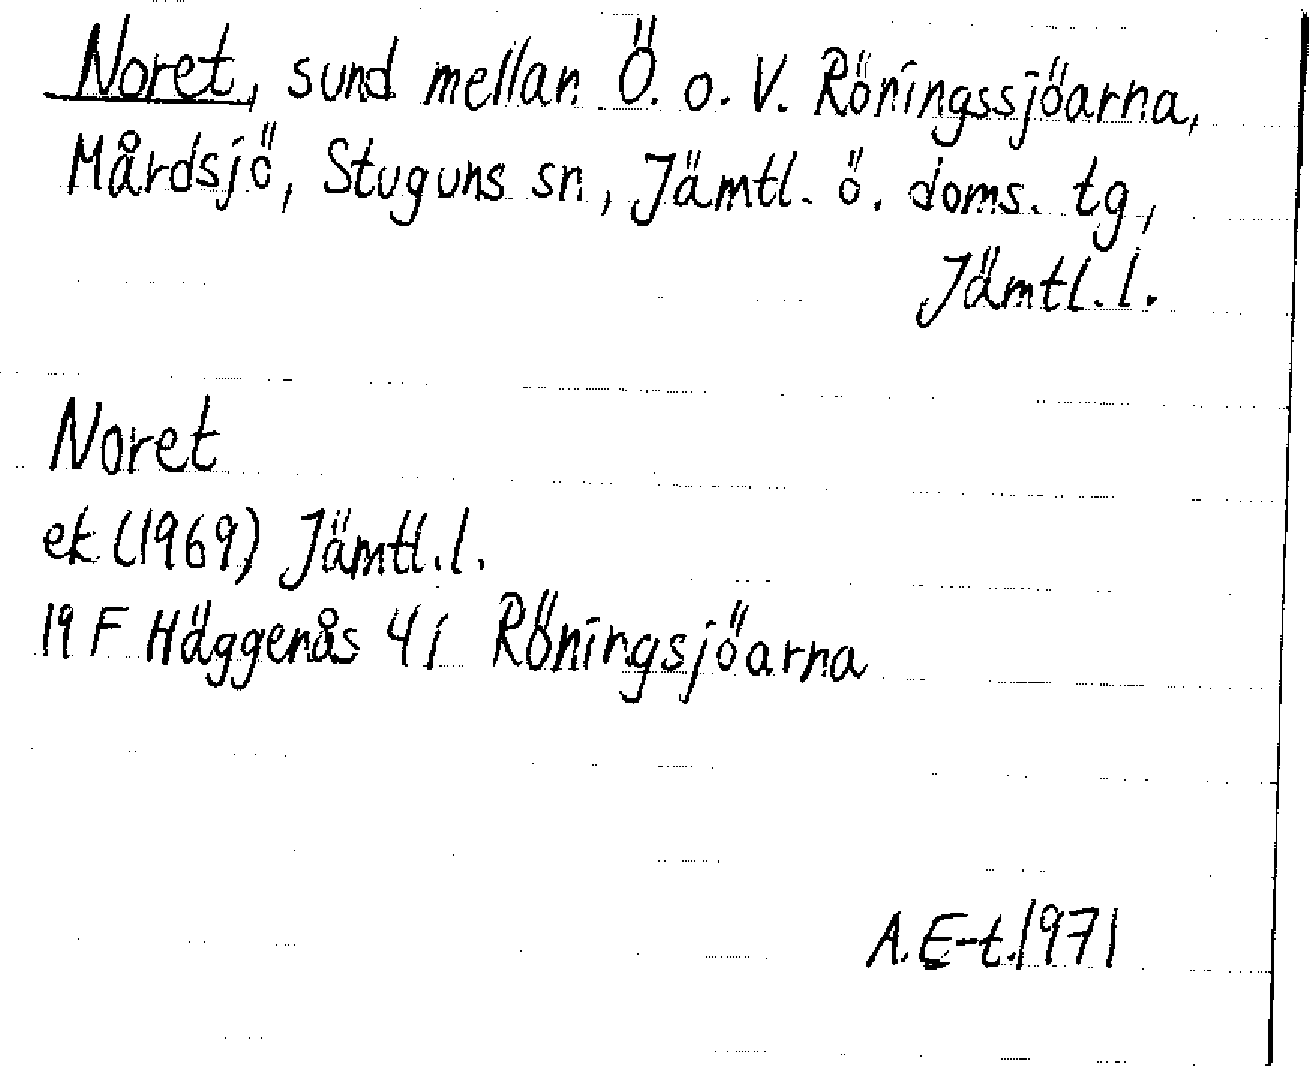 Noret, sund mellan Ö. o. V. Röningssjöarna,
Mårdsjö, Stuguns sn, Jämtl. ö. doms. tg,
Jämtl. l.
Noret
ek (1969) Jämtl. l.
19 F Häggenås 4 i Röningsjöarna
A. E-t. 1971